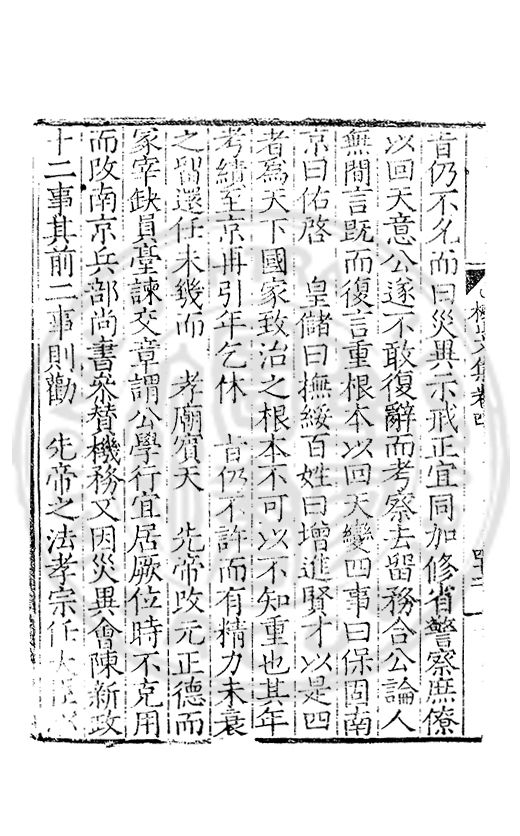 旨仍不允而曰災異示戒正宜同加修省警察庶僚
以回天意公遂不敢復辭而考察去留務合公論人
無間言既而復言重根本以回天變四事曰保固南
京曰佑啓 皇儲曰撫綏百姓曰增進賢才以是四
者為天下國家致治之根本不可以不知重也其年
考績至京再引年乞休 旨仍不許而有精力未衰
之留還任未幾而 孝廟賓天 先帝改元正德而
冢宰缺員臺諫交章謂公學行宜居厥位時不克用
而改南京兵部尚書叅替機務又因災異會陳新政
十二事其前二事則勸 先帝之法孝宗任大臣
文集卷四
四十二